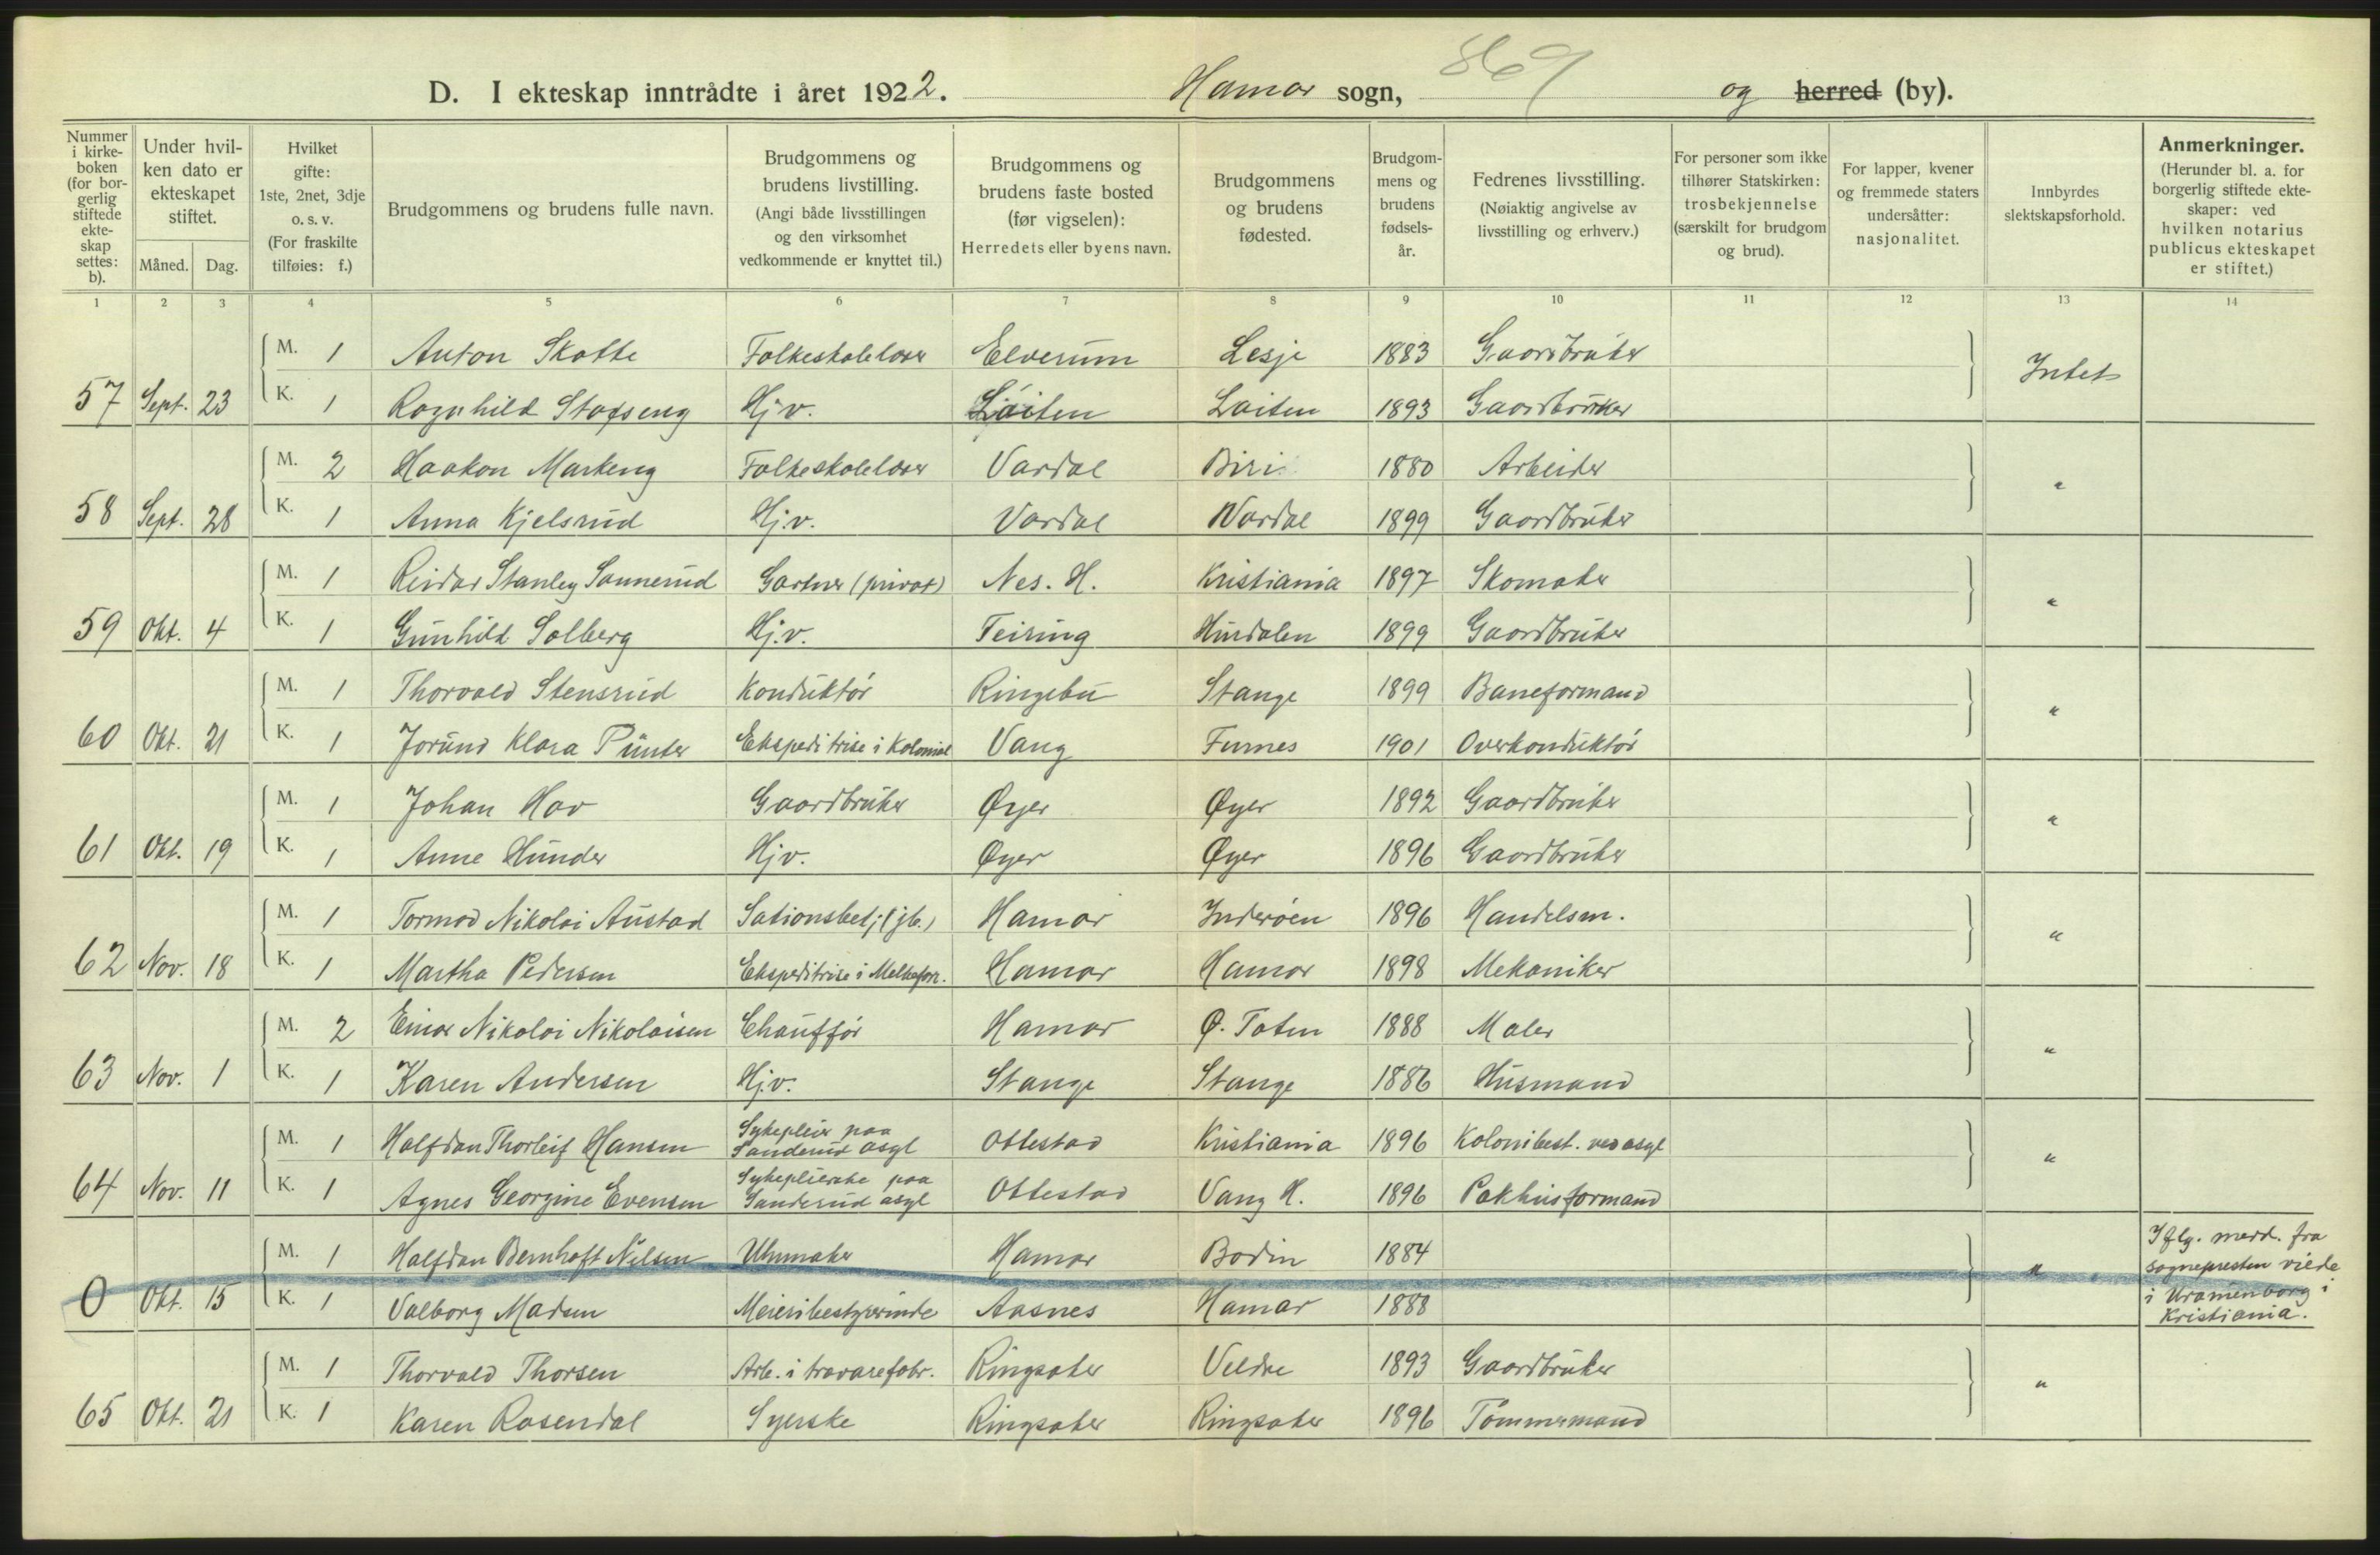 869
D. I ekteskap inntrådte i året 1922. Hamar sogn, og herred (by).
Nummer i kirke-boken (for bor-gerlig stiftede ekte-skap settes: b).
Under hvil-ken dato er ekteskapet stiftet.
Måned. Dag.
Hvilket gifte: 1ste, 2net, 3dje o. s. v. (For fraskilte tilføies: f.)
Brudgommens og brudens fulle navn.
Brudgommens og brudens livstilling. (Angi både livsstillingen og den virksomhet vedkommende er knyttet til.)
Brudgommens og brudens faste bosted (før vigselen): Herredets eller byens navn.
Brudgommens og brudens fødested.
Brudgom-mens og brudens fødsels-år.
Fedrenes livsstilling. (Nøiaktig angivelse av livsstilling og erhverv.)
For personer som ikke tilhører Statskirken: trosbekjennelse (særskilt for brudgom og brud).
For lapper, kvener og fremmede staters undersåtter: nasjonalitet.
Innbyrdes slektskapsforhold.
Anmerkninger. (Herunder bl. a. for borgerlig stiftede ekte-skaper: ved hvilken notarius publicus ekteskapet er stiftet.)
1 2 3 4 5 6 7 8 9 10 11 12 13 14
M. 1 Anton Skotte Folkeskolelærer Elverum Lesje 1883 Gaardbruker Intet
57 Sept. 23 K. 1 Ragnhild Stafseng Hj.v. Løiten Løiten 1893 Gaardbruker
M. 2 Haakon Markeng Folkeskolelærer Vardal Biri 1880 Arbeider "
58 Sept. 28 K. 1 Anna Kjelsrud Hj.v. Vardal Vardal 1899 Gaardbruker
M. 1 Reidar Stanley Sannerud Gartner (privat) Nes. H. Kristiania 1897 Skomaker "
59 Okt. 4 K. 1 Gunhild Solberg Hj.v. Feiring Hurdalen 1899 Gaardbruker
M. 1 Thorvald Stensrud Konduktør Ringebu Stange 1899 Baneformand "
60 Okt. 21 K. 1 Jorund Klara Pünter Ekspeditrise i Kolonial Vang Furnes 1901 Overkonduktør
M. 1 Johan Hov Gaardbruker Øyer Øyer 1892 Gaardbruker "
61 Okt. 19 K. 1 Anne Hunder Hjv. Øyer Øyer 1896 Gaardbruker
M. 1 Tormod Nikolai Austad Sationsbetj. (jb.) Hamar Inderøen 1896 Handelsm. "
62 Nov. 18 K. 1 Martha Pedersen Ekspeditrise i Melkeforr. Hamar Hamar 1898 Mekaniker
M. 2 Einar Nikolai Nikolaisen Chauffør Hamar Ø. Toten 1888 Maler "
63 Nov. 1 K. 1 Karen Andersen Hj.v. Stange Stange 1886 Husmand
M. 1 Halfdan Thorleif Hansen Sykepleier paa Sanderud asyl Ottestad Kristiania 1896 Kolonibest. ved asyl "
64 Nov. 11 K. 1 Agnes Georgine Evensen Sykepleierske paa Sanderud asyl Ottestad Vang H. 1896 Pakhusformand
M. 1 Halfdan Bernhoft Nilsen Uhrmaker Hamar Bodin 1884 " Iflg. medd. fra sognepresten viede i Uranienborg i Kristiania.
0 Okt. 15 K. 1 Valborg Madsen Meieribestyrerinde Aasnes Hamar 1888
M. 1 Thorvald Thorsen Arb. i trævarefabr. Ringsaker Veldre 1893 Gaardbruker "
65 Okt. 21 K. 1 Karen Rosendal Syerske Ringsaker Ringsaker 1896 Tømmermand